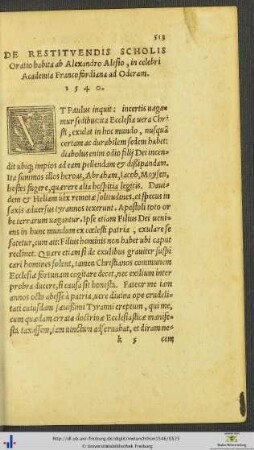 513
DE RESTITVENDIS SCHOLIS
Oratio habita ab Alexandro Alesio, in celebri
Academia Francofordiana ad Oderam.
1 5 4 0.
VT Paulus inquit: incertis uaga
mur sedibus: ita Ecclesia uera Chri
sti, exulat in hoc mundo, nusquã
certam ac durabilem sedem habet:
diabolus enim odio filij Dei incen
dit ubiq; impios ad eam pellendam et dissipandam.
Ita summos illos heroas, Abraham, Iacob, Moysen,
hostes fugere, quærere alia hospitia legitis. Daui
dem et Heliam uix remotæ solitudines, et specus in
saxis aduersus tyrannos texerunt. Apostoli toto or
be terrarum uagantur. Ipse etiam Filius Dei ueni
ens in hunc mundum ex cœlesti patria, exulare se
fatetur, cum ait: Filius hominis non habet ubi caput
reclinet. Quare etiam si de exulibus grauiter suspi
cari homines solent, tamen Christianos communem
Ecclesiæ fortunam cogitare decet, nec exilium inter
probra ducere, si causa sit honesta. Fateor me iam
annos octo abesse à patria, uere diuina ope crudeli
tati cuiusdam sæuissimi Tyranni ereptum, qui me,
cum quædam errata doctrinæ Ecclesiasticæ manife
sta taxassem, iam uinctum asseruabat, et diram ne-
k 5 cem
http://dl.ub.uni-freiburg.de/diglit/melanchthon1546/0525
© Universitätsbibliothek Freiburg